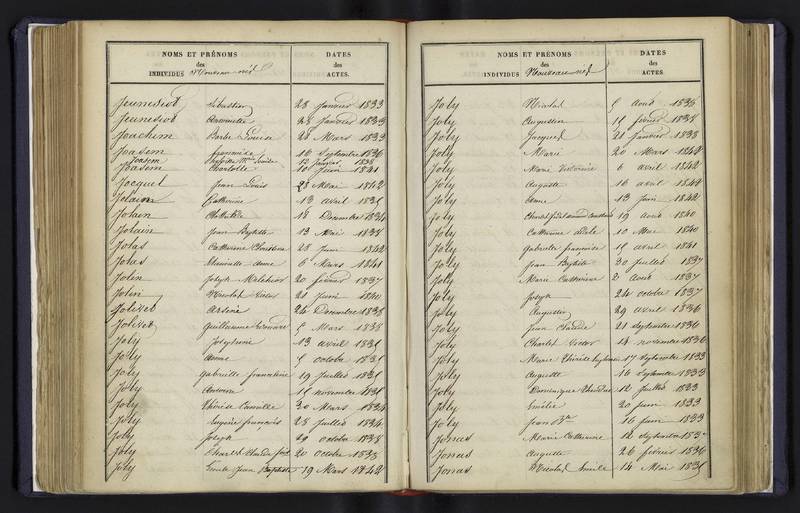 NOMS ET PRÉNOMS
des
INDIVIDUS Nouveau-nés
DATES
des
ACTES.
Jeunesiot Sébastien 28 Janvier 1833
Jeunesiot 28 Janvier 1833
Joachim Barbe Louise 28 Mars 1833
Joasem Françoise 16 Septembre 1836
Joasem 12 Janvier 1838
Joasem Charlotte 10 Juin 1841
Jocquel Jean Louis 28 Mai 1842
Jolain Catherine 13 avril 1835
Jolain Clothilde 18 Décembre 1834
Jolain Jean Baptiste 13 Mai 1838
Jolas Catherine Christine 28 Juin 1842
Jolas Anne 6 Mars 1841
Jolin Joseph Melchior 20 février 1837
Jolin Nicolas 21 Juin 1840
Jolivet Arsène 24 Décembre 1838
Jolivet Guillaume 5 Mars 1838
Joly Joséphine 13 avril 1835
Joly Anne 5 octobre 1835
Joly Gabrielle Françoise 19 Juillet 1835
Joly Antoine 15 novembre 1835
Joly Thérèse Camille 30 Mars 1834
Joly Eugène François 28 Juillet 1834
Joly Joseph 29 octobre 1838
Joly Charles Claude 20 octobre 1838
Joly Emile Jean Baptiste 19 Mars 1842
NOMS ET PRÉNOMS
des
INDIVIDUS Nouveau-nés
DATES
des
ACTES.
Joly Nicolas 5 Août 1836
Joly Augustin 15 février 1838
Joly Jacques 21 Janvier 1838
Joly Marie 20 Mars 1842
Joly Marie Victorine 6 avril 1842
Joly Auguste 16 avril 1842
Joly Anne 13 Juin 1842
Joly Charles 19 Août 1840
Joly Catherine Adèle 10 Mai 1840
Joly Gabrielle Françoise 15 avril 1841
Joly Jean Baptiste 30 Juillet 1837
Joly Marie Catherine 2 Août 1837
Joly Joseph 24 octobre 1837
Joly Augustin 29 avril 1836
Joly Jean Claude 21 Septembre 1836
Joly Charles Victor 14 novembre 1836
Joly Marie Thérèse 17 Septembre 1833
Joly Auguste 16 Septembre 1833
Joly Dominique 12 Juillet 1833
Joly Emélie 20 Juin 1833
Joly Jean Bte 16 Juin 1833
Jonas Marie Catherine 12 Septembre
Jonas Auguste 26 février 1836
Jonas Nicolas Emile 14 Mai 1835